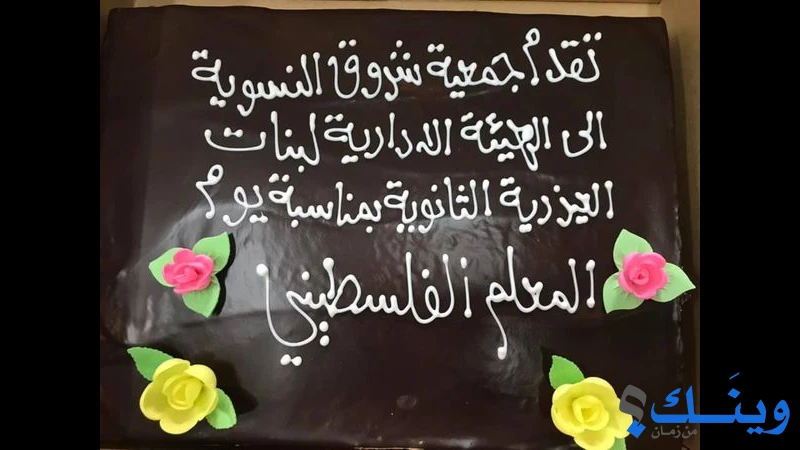 تقدم جمعية شروق النسوية
الى الهيئة الادارية لبنات
العيزرية الثانوية بمناسبة يوم
المعلم الفلسطيني
وينَـك
من زمـان